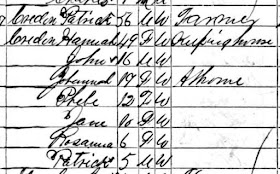 Credin Patrick 56 M W Farmer
Credin Hannah 49 F W Keeping house
John 16 M W
Hannah 19 F W At home
Phebe 12 F W
Jane 10 F W
Rosanna 6 F W
Patrick 5 M W